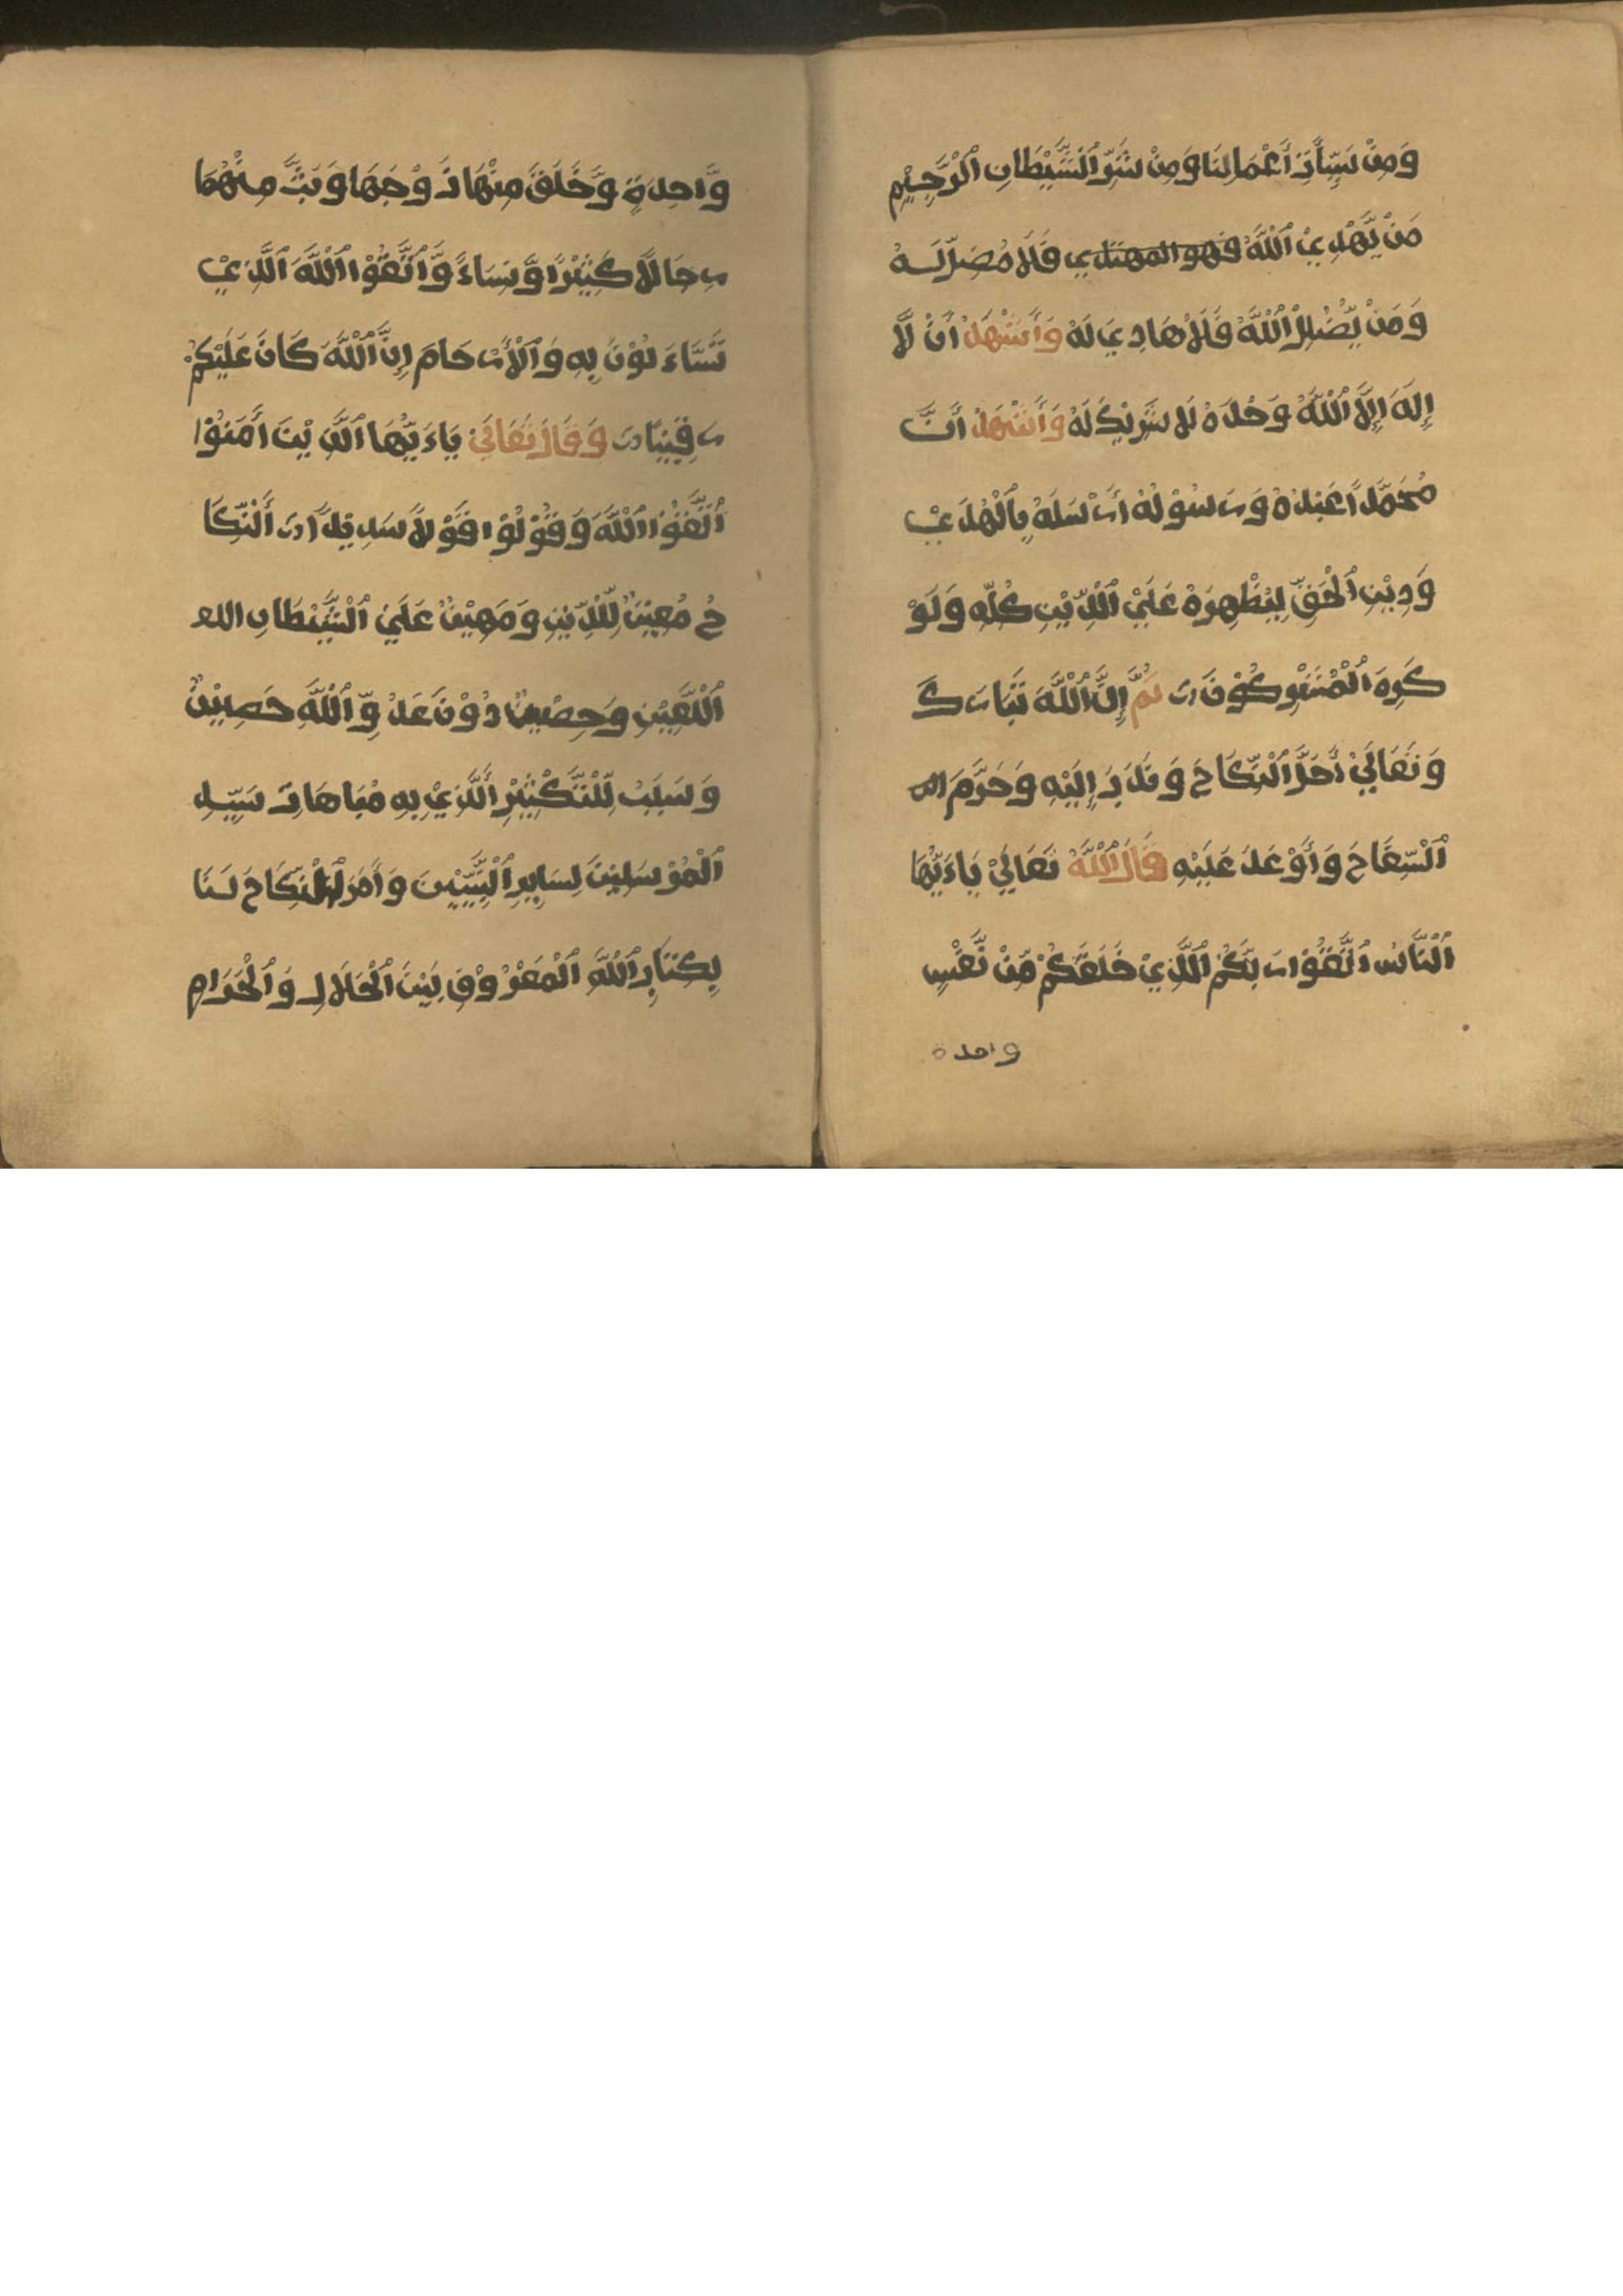 وَمِنْ سَيِّأَتِ أَعْمَالِنَا وَمِنْ شَرِّ ٱلشَّيْطَانِ ٱلرَّجِيْمِ
مَنْ يَّهْدِيْ ٱللَّهُ فهو المهتدي فَلَا مُضِلَّ لَهُ
وَمَنْ يُّضْلِلْ ٱللَّهُ فَلَا هَادِيَ لَهُ وَأَشْهَدُ أَنْ لَّا
إِلَهَ إِلَّا ٱللَّهُ وَحْدَهُ لَا شَرِيْكَ لَهُ وَأَشْهَدُ أَنَّ
مُحَمَّدًا عَبْدُهُ وَرَسُوْلُهُ أَرْسَلَهُ بِٱلْهُدَيْ
وَدِيْنِ ٱلْحَقِّ لِيُظْهِرَهُ عَلَيْ ٱلدِّيْنِ كُلِّهِ وَلَوْ
كَرِهَ ٱلْمُشْرِكُوْنَ ثُمَّ إِنَّ ٱللَّهَ تَبَارَكَ
وَتَعَالَيْ أَحَلَّ ٱلنِّكَاحَ وَنَدَبَ إِلَيْهِ وَحَرَّمَ
ٱلسِّفَاحَ وَأَوْعَدَ عَلَيْهِ قَالَ ٱللَّهُ تَعَالَيْ يَاءَيُّهَا
ٱلنَّاسُ ٱتَّقُوْا رَبَّكُمُ ٱلَّذِيْ خَلَقَكُمْ مِّنْ نَّفْسٍ
واحدة
وَّاحِدَةٍ وَّخَلَقَ مِنْهَا زَوْجَهَا وَبَثَّ مِنْهُمَا
رِجَالًا كَثِيْرًا وَّنِسَاءً وَّاتَّقُوْا ٱللَّهَ ٱلَّذِيْ
تَسَّاءَلُوْنَ بِهِ وَٱلْأَرْحَامَ إِنَّ ٱللَّهَ كَانَ عَلَيْكُمْ
رَقِيْبًا وَقَالَ تَعَالَيْ يَاءَيُّهَا ٱلَّذِيْنَ أَمَنُوْا
ٱتَّقُوْا ٱللَّهَ وَقُوْلُوْا قَوْلًا سَدِيْدًا أَلنِّكَا
حُ مُعِيْنٌ لِّلدِّيْنِ وَمَهِيْنٌ عَلَيْ ٱلشَّيْطَانِ
ٱللَّعِيْنِ وَحِصْنٌ دُوْنَ عَدُوِّ ٱللَّهِ حَصِيْنٌ
وَسَبَبٌ لِّلتَّكْثِيْرِ أَلَّذِيْ بِهِ مُبَاهَاتُ سَيِّدِ
ٱلْمُرْسَلِيْنَ لِسَايِرِ ٱلنَّبِيِّيْنَ وَأَمَرَ ٱلنِّكَاحَ لَنَا
بِكِتَابِ ٱللَّهِ ٱلْمَفْرُوْقِ بَيْنَ ٱلْحَلَالِ وَٱلْحَرَامِ